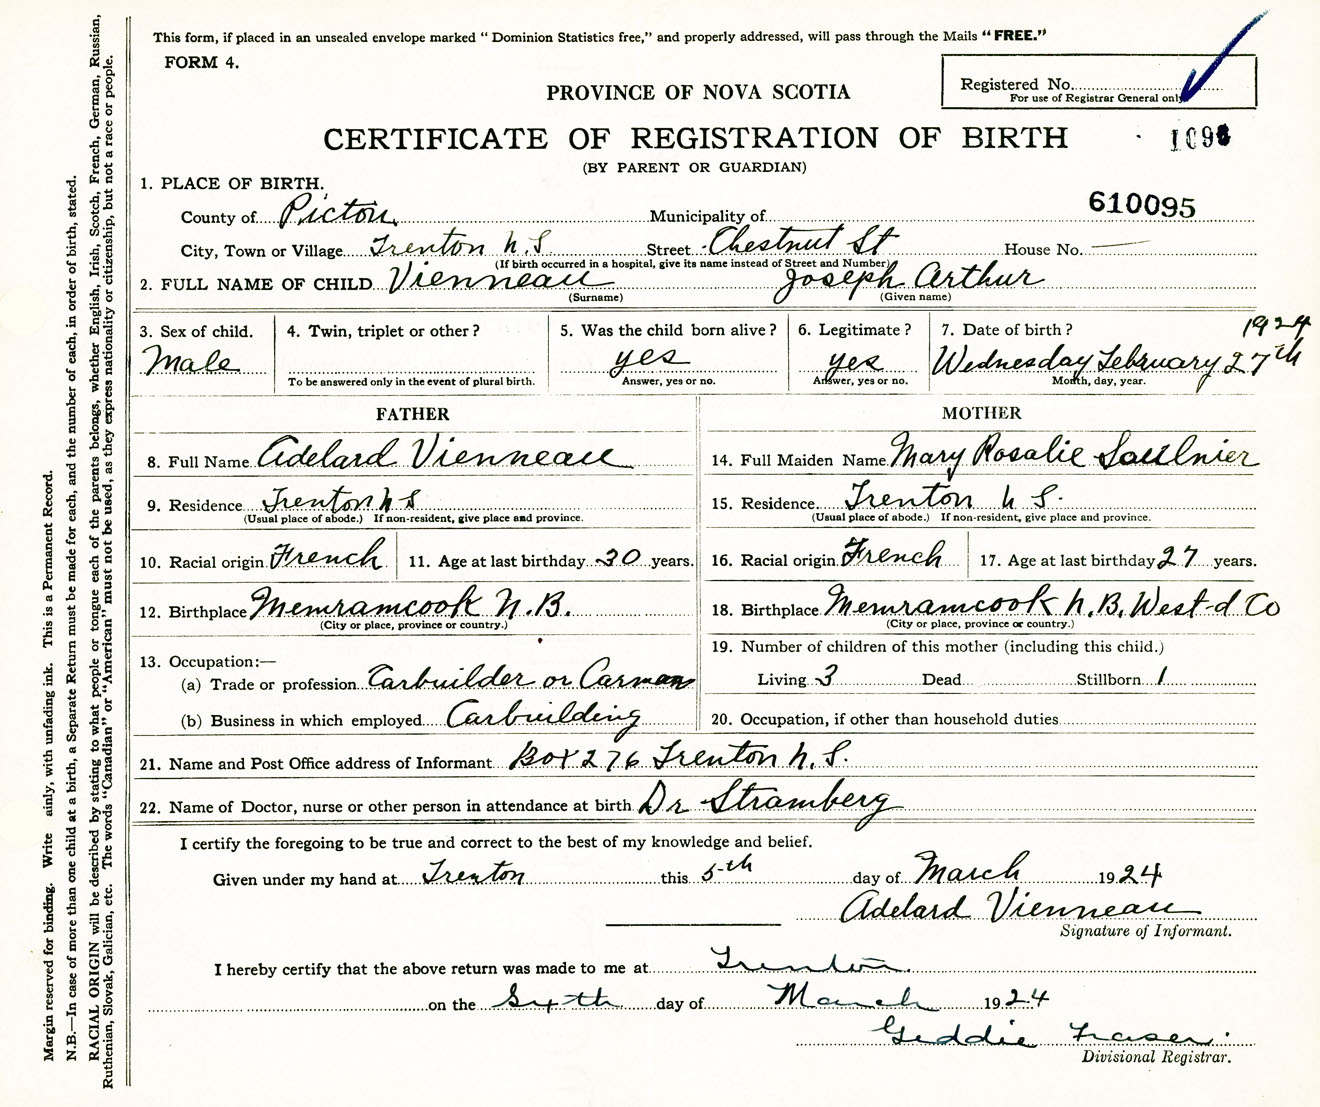 This form, if placed in an unsealed envelope marked “ Dominion Statistics free,” and properly addressed, will pass through the Mails “ FREE.”
FORM 4.
Registered No.
For use of Registrar General only
PROVINCE OF NOVA SCOTIA
CERTIFICATE OF REGISTRATION OF BIRTH
(BY PARENT OR GUARDIAN)
610095
1. PLACE OF BIRTH.
County of Pictou Municipality of
City, Town or Village Trenton N.S Street Chestnut St House No. —
(If birth occurred in a hospital, give its name instead of Street and Number)
2. FULL NAME OF CHILD Vienneau Joseph Arthur
(Surname) (Given name)
3. Sex of child. 4. Twin, triplet or other ? 5. Was the child born alive ? 6. Legitimate ? 7. Date of birth ? 1924
Male yes yes Wednesday February 27th
To be answered only in the event of plural birth. Answer, yes or no. Answer, yes or no. Month, day, year.
FATHER MOTHER
8. Full Name Adelard Vienneau 14. Full Maiden Name Mary Rosalie Saulnier
9. Residence Trenton N S 15. Residence Trenton N S.
(Usual place of abode.) If non-resident, give place and province. (Usual place of abode.) If non-resident, give place and province.
10. Racial origin French 11. Age at last birthday 30 years. 16. Racial origin French 17. Age at last birthday 27 years.
12. Birthplace Memramcook N.B. 18. Birthplace Memramcook N.B. West-d Co
(City or place, province or country.) (City or place, province or country.)
13. Occupation:— 19. Number of children of this mother (including this child.)
(a) Trade or profession Carbuilder or Carman Living 3 Dead Stillborn 1
(b) Business in which employed Carbuilding 20. Occupation, if other than household duties
21. Name and Post Office address of Informant Box 276 Trenton N. S.
22. Name of Doctor, nurse or other person in attendance at birth Dr Stramberg
I certify the foregoing to be true and correct to the best of my knowledge and belief.
Given under my hand at Trenton this 5-th day of March 1924
Adelard Vienneau
Signature of Informant.
I hereby certify that the above return was made to me at Trenton.
on the Sixth day of March 1924
Geddie Fraser.
Divisional Registrar.
Margin reserved for binding. Write ainly, with unfading ink. This is a Permanent Record.
N.B.—In case of more than one child at a birth, a Separate Return must be made for each, and the number of each, in order of birth, stated.
RACIAL ORIGIN will be described by stating to what people or tongue each of the parents belongs, whether English, Irish, Scotch, French, German, Russian,
Ruthenian, Slovak, Galician, etc. The words “Canadian” or “American” must not be used, as they express nationality or citizenship, but not a race or people.